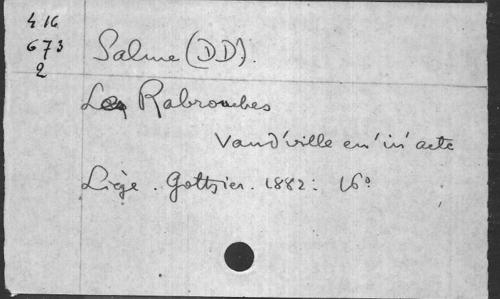 416
673
2
Salme (DD).
Les Rabrouhes
Vaud'ville en' in' acte
Liège. Gothier. 1882: 16°